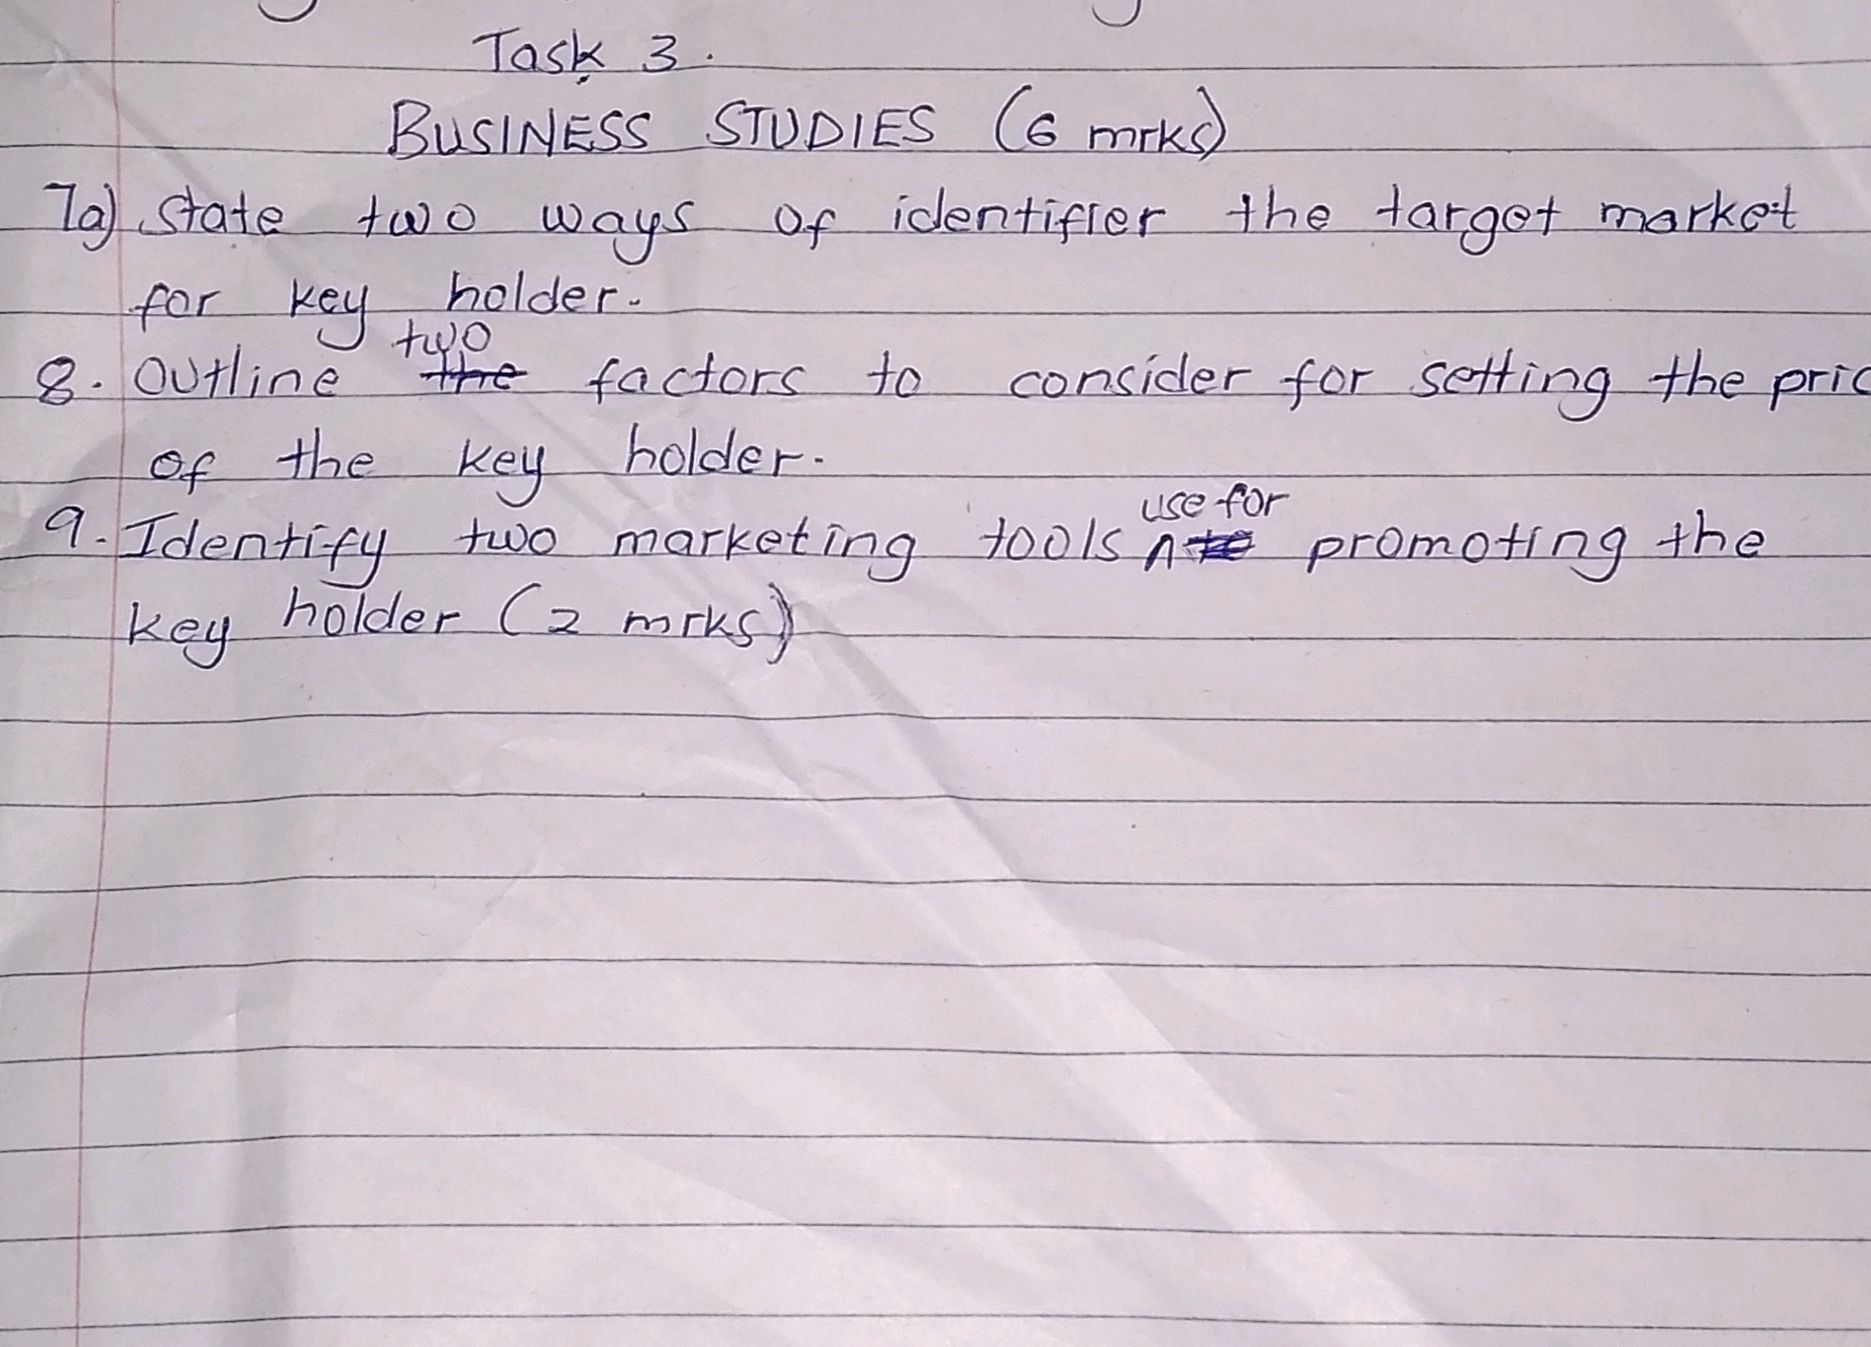 Task 3.
BUSINESS STUDIES (6 mrks)
7a) state two ways of identifier the target market
for key holder.
two
8. Outline the factors to consider for setting the pric
of the key holder.
use for
9. Identify two marketing tools ^ to promoting the
key holder (2 mrks)